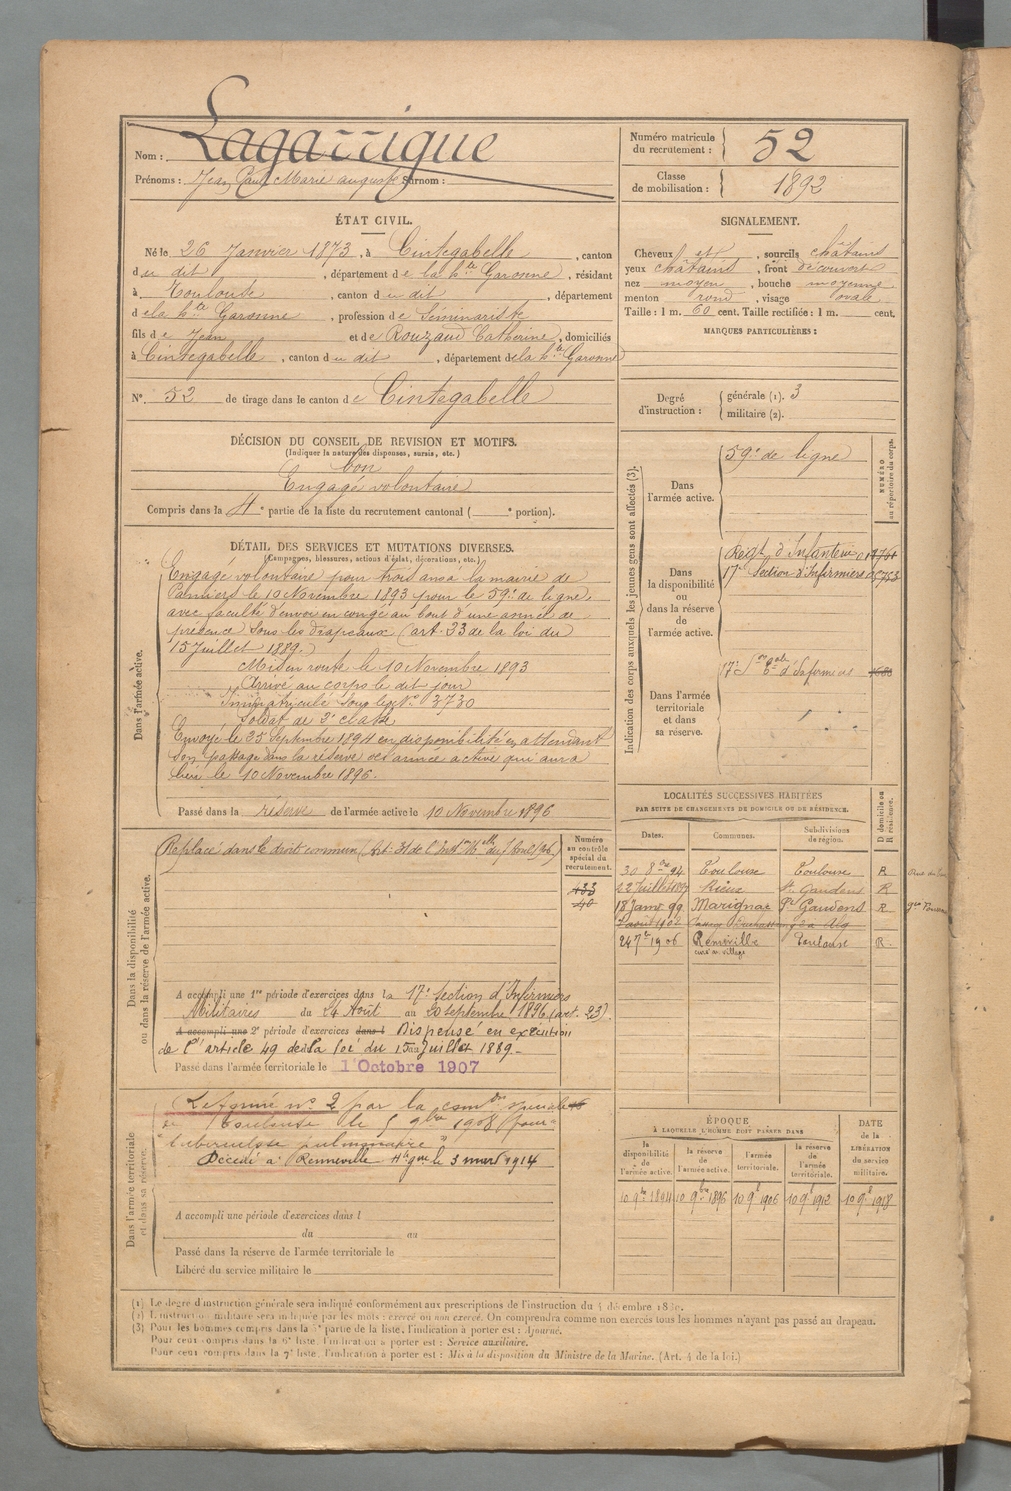 Nom : Lagarrigue
Prénoms : Jean Paul Marie auguste Surnom :
Numéro matricule du recrutement : 52
Classe de mobilisation : 1892
ÉTAT CIVIL.
Né le 26 Janvier 1873, à Cintegabelle, canton
du dit, département de la hte Garonne, résidant
à Toulouse, canton du dit, département
de la hte Garonne, profession de Séminariste
fils de Jean et de Rouzaud Catherine, domiciliés
à Cintegabelle, canton du dit, département de la hte Garonne
N° 52 de tirage dans le canton de Cintegabelle
SIGNALEMENT.
Cheveux et, sourcils châtains
yeux châtains, front découvert
nez moyen, bouche moyenne
menton rond, visage ovale
Taille : 1 m. 60 cent. Taille rectifiée : 1 m. cent.
MARQUES PARTICULIÈRES :
Degré d'instruction : générale (1). 3
militaire (2).
DÉCISION DU CONSEIL DE REVISION ET MOTIFS.
(Indiquer la nature des dispenses, sursis, etc.)
bon
Engagé volontaire
Compris dans la 4e partie de la liste du recrutement cantonal ( e portion).
DÉTAIL DES SERVICES ET MUTATIONS DIVERSES.
(Campagnes, blessures, actions d'éclat, décorations, etc.)
Dans l'armée active.
Engagé volontaire pour trois ans a la mairie de
Pamiers le 10 Novembre 1893 pour le 59e de ligne,
avec faculté d'envoi en congé au bout d'une année de
présence sous les drapeaux (art. 33 de la loi du
15 Juillet 1889.)
Mis en route le 10 Novembre 1893
Arrivé au corps le dit jour
Immatriculé sous le N° 3730
Soldat de 2e classe
Envoyé le 25 Septembre 1894 en disponibilité en attendant
son passage dans la réserve de l'armée active qui aura
lieu le 10 Novembre 1896.
Passé dans la réserve de l'armée active le 10 Novembre 1896
Indication des corps auxquels les jeunes gens sont affectés (3).
NUMÉRO au répertoire du corps.
Dans l'armée active.
59e de ligne
Dans la disponibilité ou dans la réserve de l'armée active.
Regt d'Infanterie
17e Section d'Infirmiers
Dans l'armée territoriale et dans sa réserve.
17e Son d'Infirmiers
LOCALITÉS SUCCESSIVES HABITÉES
PAR SUITE DE CHANGEMENTS DE DOMICILE OU DE RÉSIDENCE.
Dates. Communes. Subdivisions de région. D domicile ou R résidence.
30 8bre 94 Toulouse Toulouse R
22 Juillet 1897 Rieux St Gaudens R
18 Janv 99 Marignac St Gaudens R
24 7bre 1906 Renneville Toulouse R.
curé au village
Dans la disponibilité ou dans la réserve de l'armée active.
Numéro au contrôle spécial du recrutement.
433
40
Replacé dans le droit commun
A accompli une 1re période d'exercices dans la 17e Section d'Infirmiers
Militaires du 24 Août au 20 septembre 1896 (art. 23).
A accompli une 2e période d'exercices dans l Dispensé en exécution
de l'article 49 de la loi du 15 Juillet 1889.
Passé dans l'armée territoriale le 1er Octobre 1907
Dans l'armée territoriale et dans sa réserve.
Réformé n° 2 par la comon spéciale
de Toulouse le 5 9bre 1908 pour
"tuberculose pulmonaire"
Décédé à Renneville Hte Gne le 3 mars 1914
A accompli une période d'exercices dans l
du au
Passé dans la réserve de l'armée territoriale le
Libéré du service militaire le
ÉPOQUE
À LAQUELLE L'HOMME DOIT PASSER DANS
la disponibilité de l'armée active. la réserve de l'armée active. l'armée territoriale. la réserve de l'armée territoriale.
DATE de la LIBÉRATION du service militaire.
10 9bre 1894 10 9bre 1896 10 9e 1906 10 9e 1912 10 9e 1918
(1) Le degré d'instruction générale sera indiqué conformément aux prescriptions de l'instruction du 4 décembre 1889.
(2) L'instruction militaire sera indiquée par les mots : exercé ou non exercé. On comprendra comme non exercés tous les hommes n'ayant pas passé au drapeau.
(3) Pour les hommes compris dans la 5e partie de la liste, l'indication à porter est : Ajourné.
Pour ceux compris dans la 6e liste, l'indication à porter est : Service auxiliaire.
Pour ceux compris dans la 7e liste, l'indication à porter est : Mis à la disposition du Ministre de la Marine. (Art. 4 de la loi.)